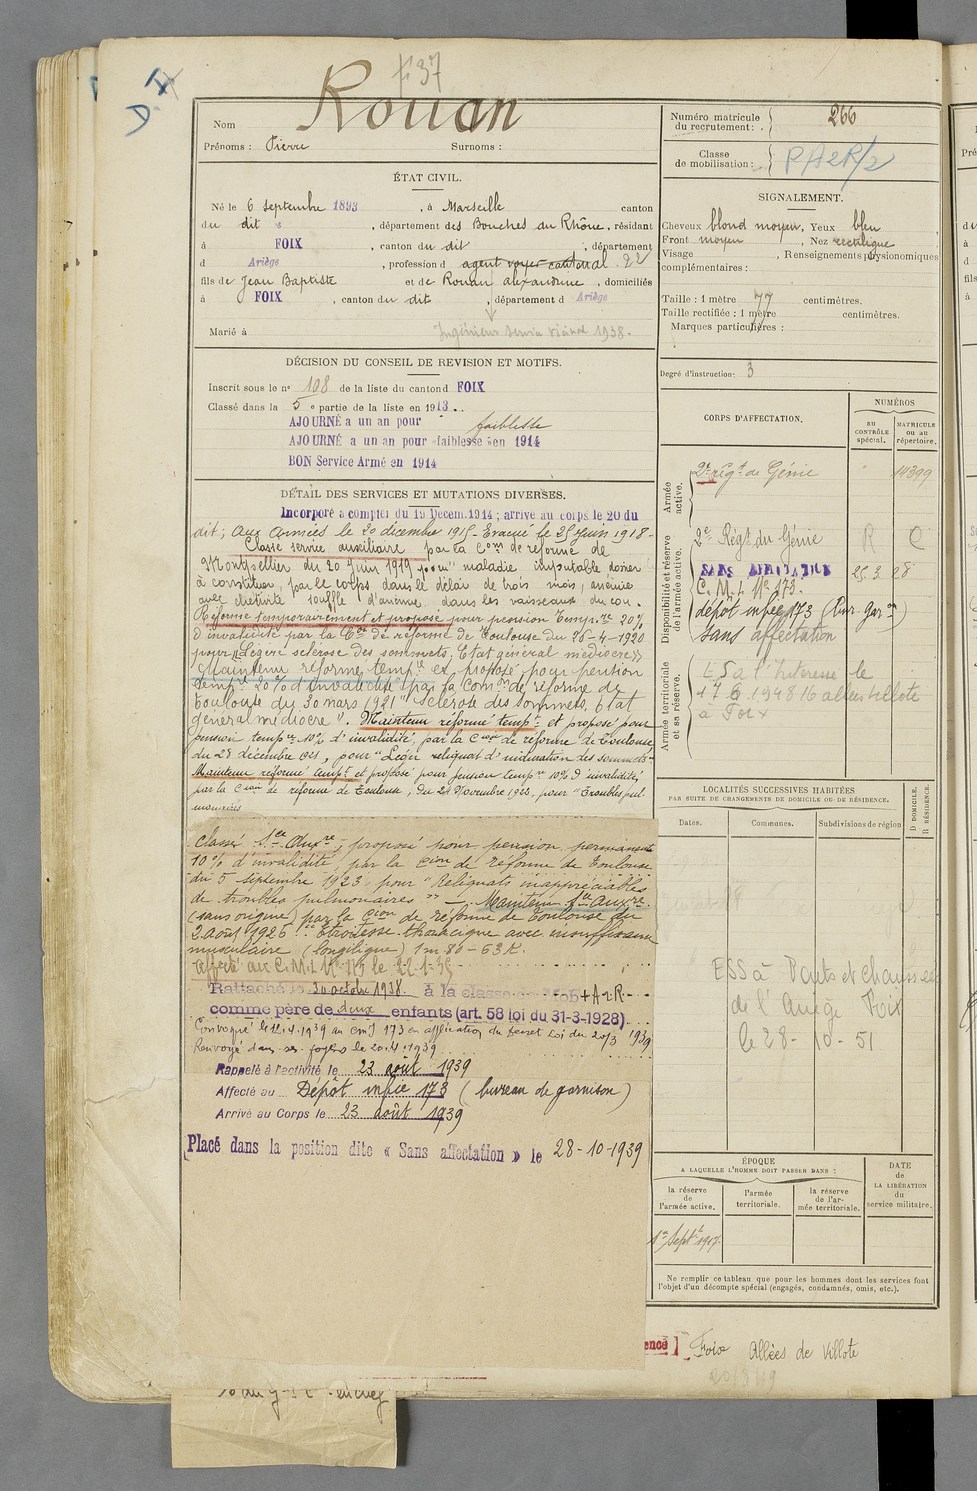 D. H
437
Rouan
Nom
Prénoms : Pierre Surnoms :
ÉTAT CIVIL.
Né le 6 septembre 1893, à Marseille canton
du dit, département des Bouches du Rhône, résidant
à FOIX, canton du dit, département
d Ariège, profession d agent voyer cantonal 22
fils de Jean Baptiste et de Rouan Alexandrine, domiciliés
à FOIX, canton du dit, département d Ariège
Marié à Ingénieur Service vicinal 1938.
DÉCISION DU CONSEIL DE REVISION ET MOTIFS.
Inscrit sous le n° 108 de la liste du canton d FOIX
Classé dans la 5e partie de la liste en 1913..
AJOURNÉ a un an pour faiblesse
AJOURNÉ a un an pour faiblesse en 1914
BON Service Armé en 1914
DÉTAIL DES SERVICES ET MUTATIONS DIVERSES.
Incorporé a compter du 19 Décem.1914; arrivé au corps le 20 du
dit; Aux Armées le 20 décembre 1915 - Evacué le 25 Juin 1918 -
Classé service auxiliaire par la Com de réforme de
Montpellier du 20 Juin 1919 pour " maladie imputable donner
à constituer, par le corps dans le délai de trois mois, anémie
avec chétivité souffle d'anémie dans les vaisseaux du cou.
Réformé temporairement et proposé pour pension temp.re 20%
d'invalidité par la Con de réforme de Toulouse du 26-4-1920
pour "Légère sclérose des sommets, Etat général médiocre"
Maintenu réformé temp.re et proposé pour pension
temp.re 20% d'invalidité par la Com.on de réforme de
Toulouse du 30 mars 1921 "sclérose des sommets, Etat
général médiocre". Maintenu réformé temp.re et proposé pour
pension temp.re 10% d'invalidité par la Cion de réforme de Toulouse,
du 28 décembre 1921, pour "Léger reliquat d'induration des sommets".
Maintenu réformé temp.re et proposé pour pension temp.re 10% d'invalidité
par la Cion de réforme de Toulouse, du 24 Novembre 1922, pour "Troubles pul
monaires
Classé See Auxre, proposé pour pension permanente
10% d'invalidité par la Cion de réforme de Toulouse
du 5 septembre 1923 pour "Reliquats inappréciables
de troubles pulmonaires" — Maintenu See auxre.
(sans origine) par la Cion de réforme de Toulouse du
2 août 1926 "Etroitesse thoracique avec insuffisance
musculaire (longiligne) 1m 80 - 63 K.
Affecté au C.M.I. No 173 le 22-1-35
Rattaché le 30 octobre 1938 à la classe de Mob + A 2 R
comme père de deux enfants (art. 58 loi du 31-3-1928).
Convoqué le 12.4.1939 au CMI 173 en application du Décret Loi du 20/3 1939
Renvoyé dans ses foyers le 20.4.1939
Rappelé à l'activité le 23 août 1939
Affecté au Dépôt infie 173 (bureau de garnison)
Arrivé au Corps le 23 août 1939
Placé dans la position dite « Sans affectation » le 28-10-1939
Numéro matricule du recrutement : 266
Classe de mobilisation : PA2R/2
SIGNALEMENT.
Cheveux blond moyen, Yeux bleu
Front moyen, Nez rectiligne
Visage , Renseignements physionomiques
complémentaires :
Taille : 1 mètre 77 centimètres.
Taille rectifiée : 1 mètre centimètres.
Marques particulières :
Degré d'instruction : 3
CORPS D'AFFECTATION.
NUMÉROS
au CONTRÔLE spécial.
MATRICULE ou au répertoire.
Armée active.
2e régt de Génie 14399
Disponibilité et réserve de l'armée active.
2e Régt du Génie R C
SANS AFFECTATION
C. M. I. No 173. 25.3.28
dépôt infie 173 (Bur. Garon)
Sans affectation
Armée territoriale et sa réserve.
ESa l'Interessé le
17 6 1948 16 allées Villote
à Foix
LOCALITÉS SUCCESSIVES HABITÉES
PAR SUITE DE CHANGEMENTS DE DOMICILE OU DE RÉSIDENCE.
Dates. Communes. Subdivisions de région
D DOMICILE. R RÉSIDENCE.
ESS à Ponts et Chaussées
de l'Ariège Foix
le 28 - 10 - 51
ÉPOQUE
A LAQUELLE L'HOMME DOIT PASSER DANS :
la réserve de l'armée active.
l'armée territoriale.
la réserve de l'armée territoriale.
DATE de LA LIBÉRATION du service militaire.
1er Septre 1917.
Ne remplir ce tableau que pour les hommes dont les services font
l'objet d'un décompte spécial (engagés, condamnés, omis, etc.).
ence Foix Allées de Villote
20/8/49